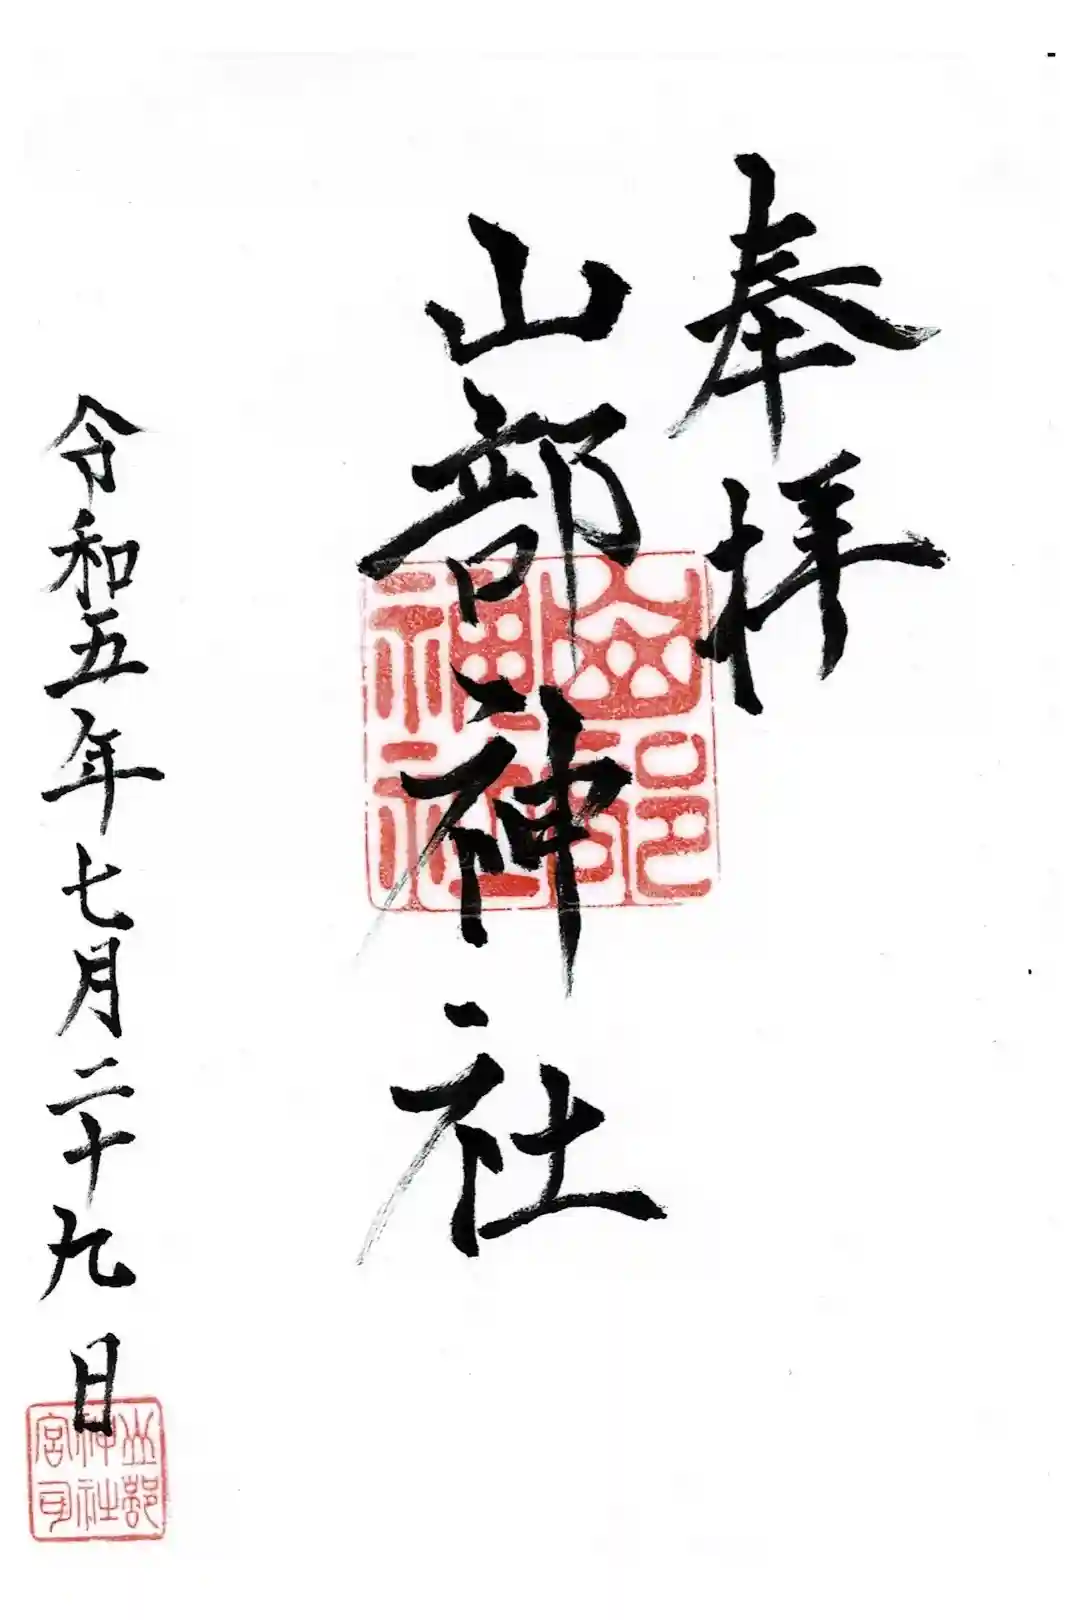 奉拝
山部神社
山部神社
令和五年七月二十九日
山部
神社
宮司